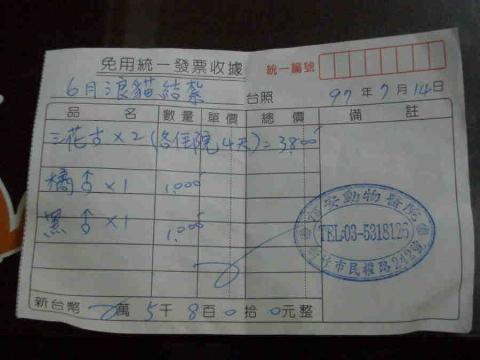 免用統一發票收據
統一編號
6月浪貓結紮 台照 97年7月14日
品名 數量 單價 總價 備註
三花 ×2 (各住院4天) = 3,800
橘♂×1 1,000
黑♂×1 1,000
安動物醫院
TEL:03-5318125
新竹市民權路242號
新台幣 萬5千8百0拾0元整